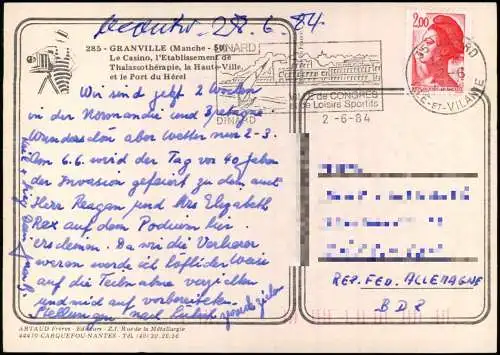 28.6.84
285 - GRANVILLE (Manche - 50)
Le Casino, l'Etablissement de
Thalassothérapie, la Haute-Ville
et le Port du Hérel
DINARD
VILLE de CONGRES
de Loisirs Sportifs
DINARD
2-6-84
2,00
ILLE-ET-VILAINE
Wir sind jetzt 2 Wochen
in der Normandie und Bretagne
Wunderschön aber Wetter nur 2-3.
Am 6.6. wird der Tag vor 40 Jahren
der Invasion gefeiert zu dem auch
Herr Reagan und Mrs Elizabeth
Rex auf dem Podium hier
Da wir die Verlierer
waren werde ich höflicher Weise
auf die Teilnahme verzichten
und mich auf vorbereitete
Stellungen nach Lübeck zurück ziehen
REP. FED. ALLEMAGNE
BDR
ARTAUD Frères - Editeurs - Z.I. Rue de la Métallurgie
44470 CARQUEFOU-NANTES - Tél. (40)